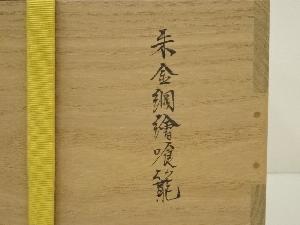 朱金網繪喰籠